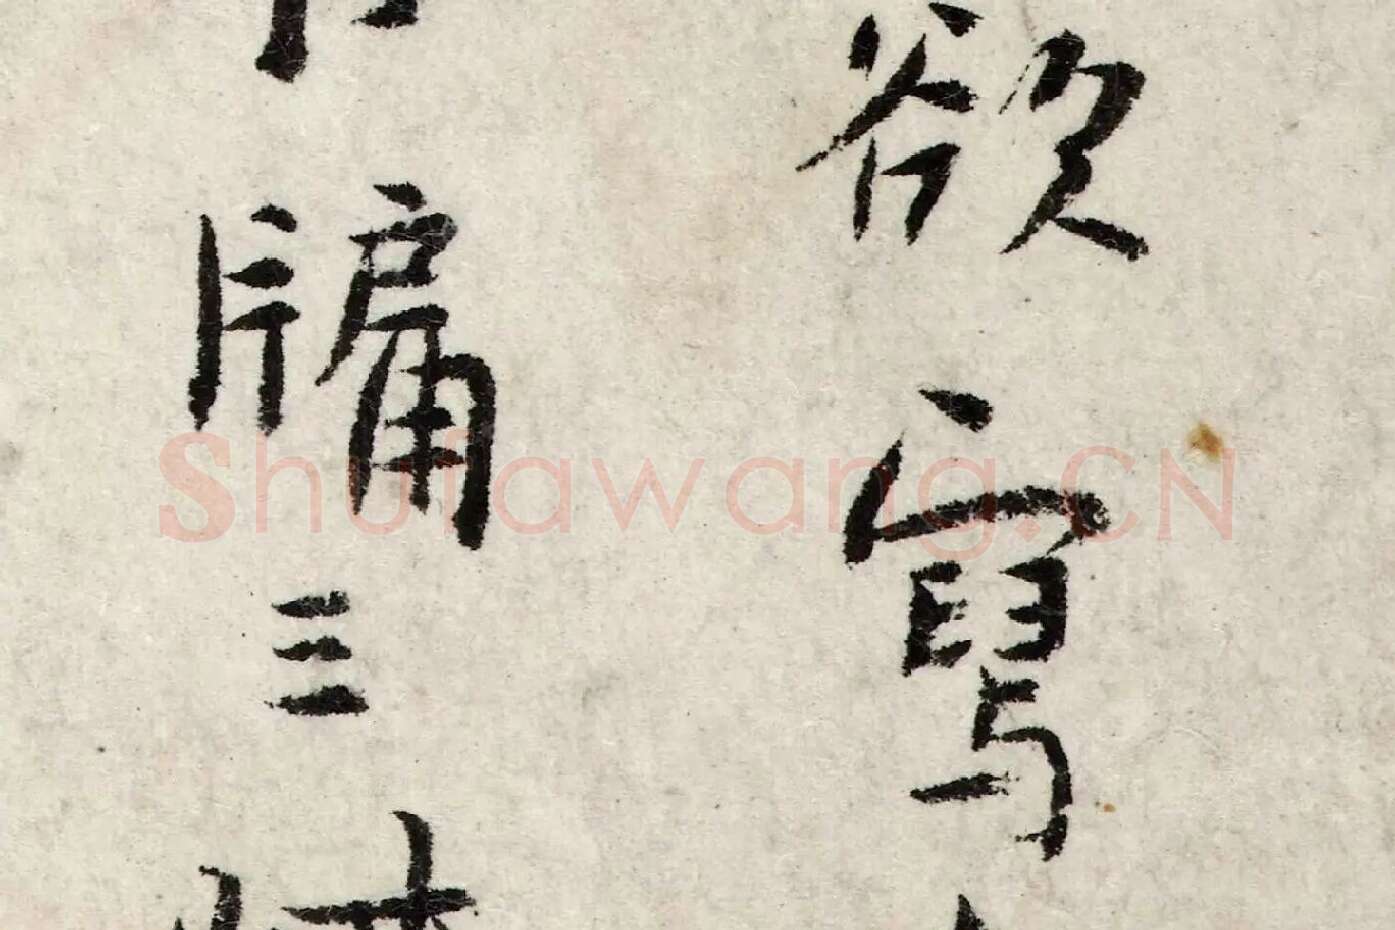 欲寫
牖三
Shufawang.CN